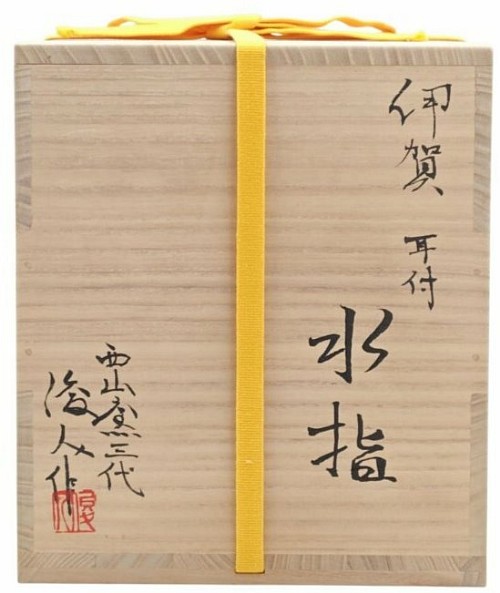 伊賀
耳付
水指
西山窯三代
俊人作